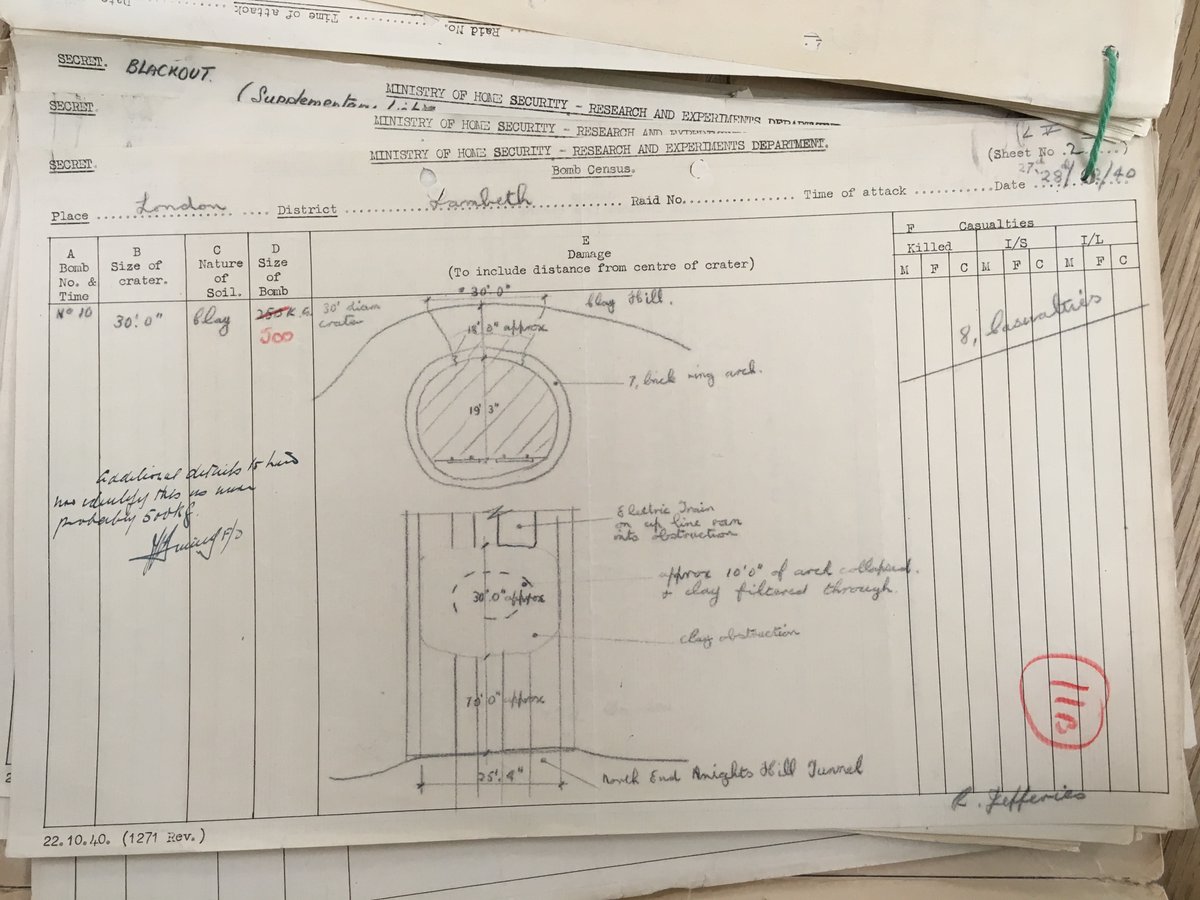 Date
Time of attack
Raid No.
SECRET. BLACKOUT.
(Supplementary
MINISTRY OF HOME SECURITY - RESEARCH AND EXPERIMENTS
SECRET.
MINISTRY OF HOME SECURITY - RESEARCH AND
SECRET.
MINISTRY OF HOME SECURITY - RESEARCH AND EXPERIMENTS DEPARTMENT.
(Sheet No. 2
Bomb Census.
Place London District Lambeth Raid No. Time of attack Date 27th 28/ /40
A
Bomb
No. &
Time
B
Size of
crater.
C
Nature
of
Soil.
D
Size
of
Bomb
E
Damage
(To include distance from centre of crater)
F Casualties
Killed I/S I/L
M F C M F C M F C
No 10
30'.0"
Clay
255 K.G.
500
30' diam
crater
30'.0"
Clay Hill.
18'.0" approx
7, brick ring arch.
19' 3"
8, Casualties
Additional details to hand
now identify this as more
probably 500kg.
Electric Train
on up line ran
into obstruction
approx 10'0" of arch collapsed.
+ clay filtered through.
30'.0" approx
clay obstruction
70'.0" approx
25'.4"
North End Knights Hill Tunnel
R. Jefferies
22.10.40. (1271 Rev.)